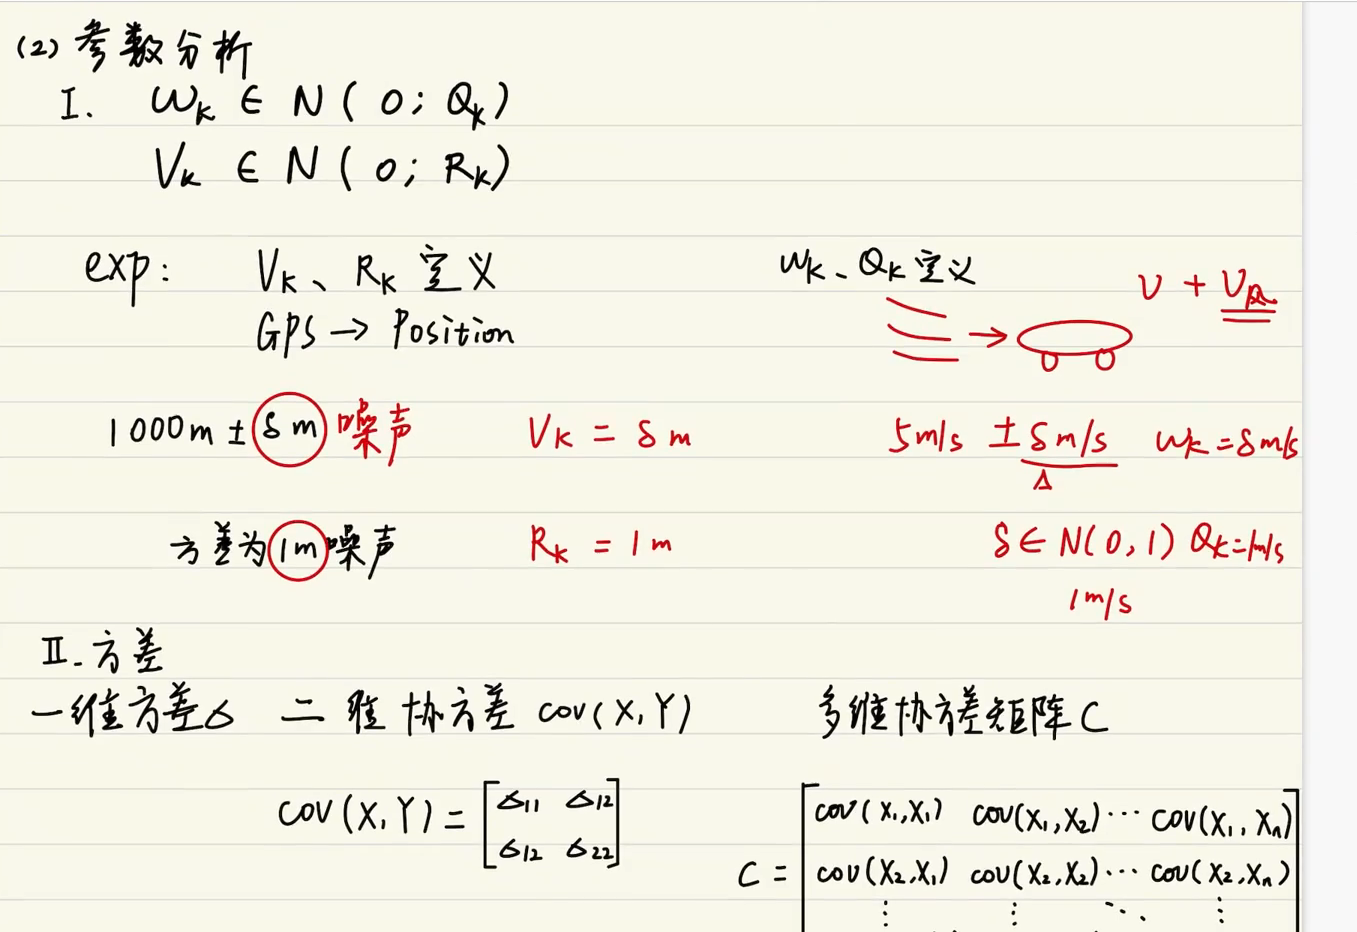 (2) 参数分析
I. Wk ∈ N( 0; Qk)
Vk ∈ N( 0; Rk)
exp: Vk、Rk 定义
GPS → Position
Wk、Qk 定义
υ +
1000m ± δm 噪声 Vk = δm
5m/s ± δm/s Wk = δm/s
Δ
方差为 1m 噪声 Rk = 1m
δ ∈ N(0,1) Qk=1m/s
1m/s
II. 方差
一维方差σ 二维 协方差 cov(X,Y) 多维协方差矩阵 C
cov(X,Y) = [σ11 σ12
σ12 σ22]
C = [cov(X1,X1) cov(X1,X2) ⋯ cov(X1,Xn)
cov(X2,X1) cov(X2,X2) ⋯ cov(X2,Xn)
⋮ ⋮ ⋱ ⋮